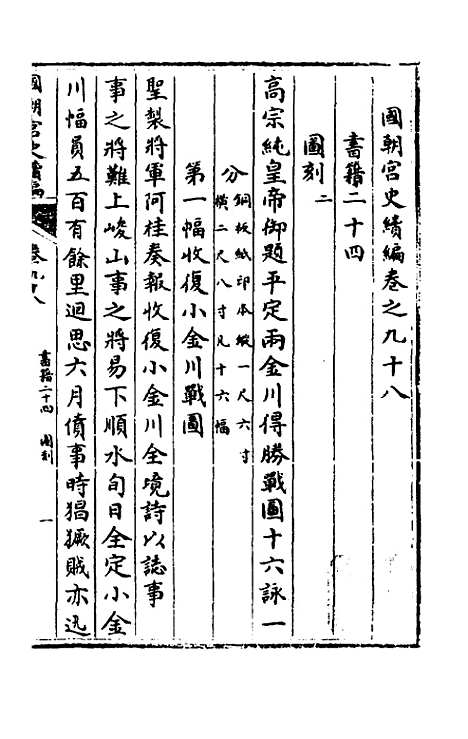 國朝宮史續編卷之九十八
書籍二十四
圖刻二
高宗純皇帝御題平定兩金川得勝戰圖十六詠一
分銅板紙印本縱一尺六寸
橫二尺八寸凡十六幅
第一幅收復小金川戰圖
聖製將軍阿桂奏報收復小金川全境詩以誌事
事之將難上峻山事之將易下順水旬日全定小金
川幅員五百有餘里迴思六月僨事時猖獗賊亦迅
國朝宮史續編 卷九十八
書籍二十四 圖刻 一